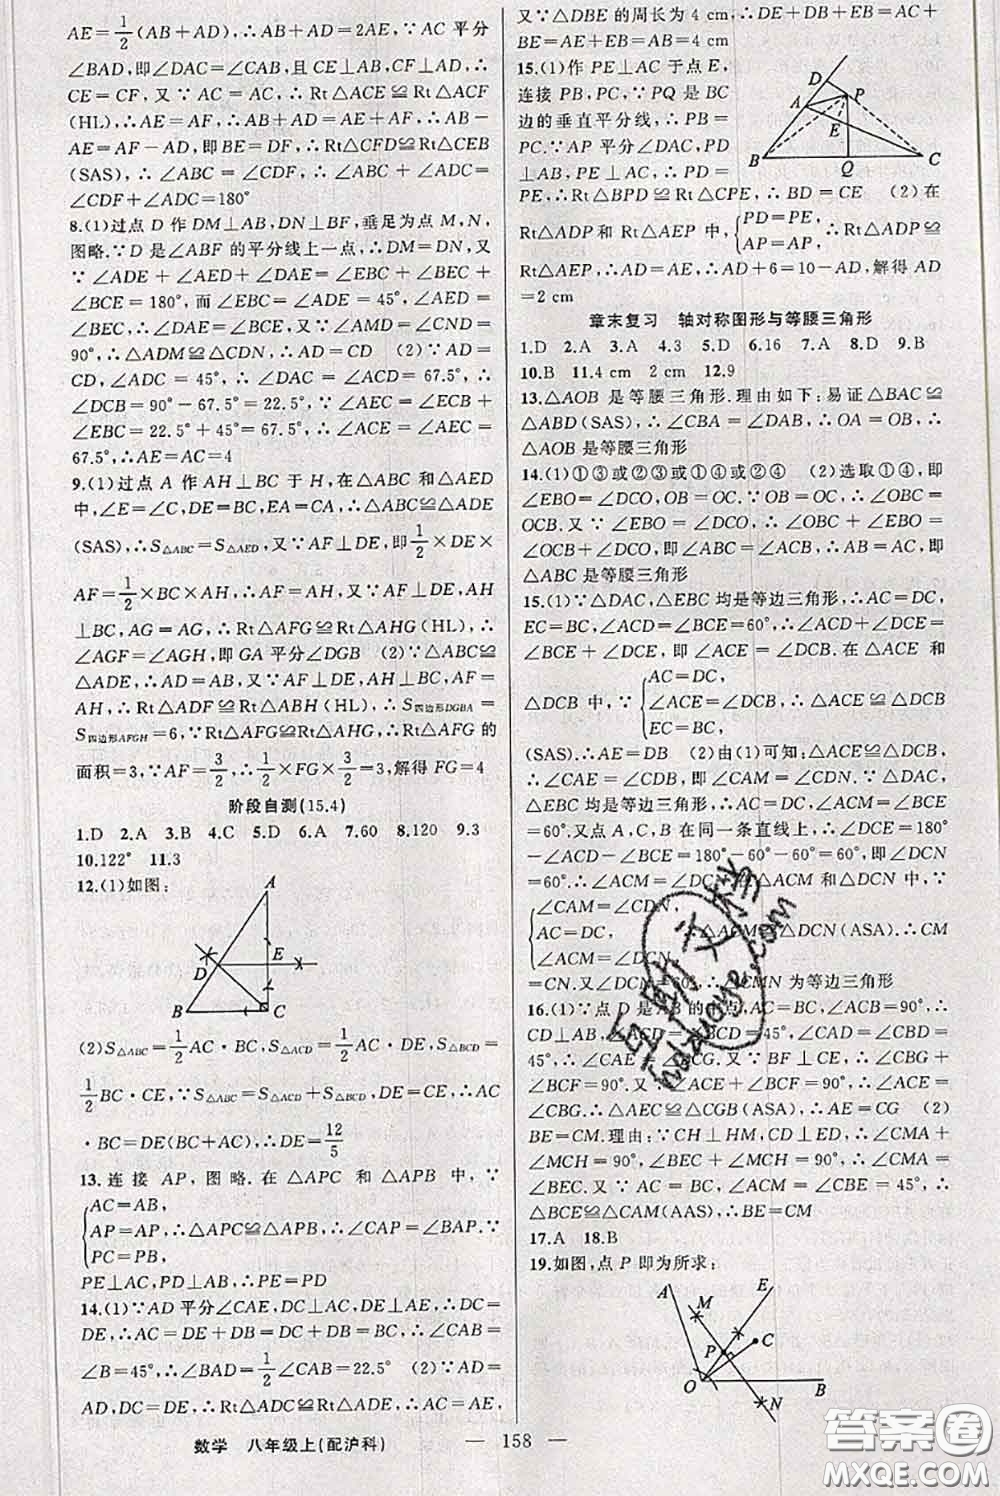 AE=1/2(AB+AD),∴AB+AD=2AE,∵AC 平分
∠BAD,即∠DAC=∠CAB,且 CE⊥AB,CF⊥AD,∴
CE=CF,又∵AC=AC,∴Rt△ACE≌Rt△ACF
(HL),∴AE=AF,∴AB+AD=AE+AF,∴AB-
AE=AF-AD,即BE=DF,∴Rt△CFD≌Rt△CEB
(SAS),∴∠ABC=∠CDF,∴∠ABC+∠ADC=
∠CDF+∠ADC=180°
8.(1)过点 D 作 DM⊥AB,DN⊥BF,垂足为点 M,N,
图略.∵D 是∠ABF 的平分线上一点,∴DM=DN,又
∵∠ADE+∠AED+∠DAE=∠EBC+∠BEC+
∠BCE=180°,而∠EBC=∠ADE=45°,∠AED=
∠BEC,∴∠DAE=∠BCE,又∵∠AMD=∠CND=
90°,∴△ADM≌△CDN,∴AD=CD (2)∵AD=
CD,∠ADC=45°,∴∠DAC=∠ACD=67.5°,∴
∠DCB=90°-67.5°=22.5°,∵∠AEC=∠ECB+
∠EBC=22.5°+45°=67.5°,∴∠ACE=∠AEC=
67.5°,∴AE=AC=4
9.(1)过点 A 作 AH⊥BC 于 H,在△ABC 和△AED
中,∠E=∠C,DE=BC,EA=CA,∴△ABC≌△ADE
(SAS),∴S△ABC=S△AED,又∵AF⊥DE,即1/2×DE×
AF=1/2×BC×AH,∴AF=AH,又∵AF⊥DE,AH
⊥BC,AG=AG,∴Rt△AFG≌Rt△AHG(HL),∴
∠AGF=∠AGH,即 GA 平分∠DGB (2)∵△ABC≌
△ADE,∴AD=AB,又∵AF⊥DE,AH⊥BC,AF=
AH,∴Rt△ADF≌Rt△ABH(HL),∴S四边形DGBA=
S四边形AFGH=6,∵Rt△AFG≌Rt△AHG,∴Rt△AFG 的
面积=3,∵AF=3/2,∴1/2×FG×3/2=3,解得 FG=4
阶段自测(15.4)
1.D 2.A 3.B 4.C 5.D 6.A 7.60 8.120 9.3
10.122° 11.3
12.(1)如图:
A
D E
B C
(2)S△ABC=1/2AC·BC,S△ACD=1/2AC·DE,S△BCD=
1/2BC·CE,∵S△ABC=S△ACD+S△BCD,DE=CE,∴AC
·BC=DE(BC+AC),∴DE=12/5
13.连接 AP,图略.在△APC 和△APB 中,∵
AC=AB,
AP=AP,∴△APC≌△APB,∴∠CAP=∠BAP.∵
PC=PB,
PE⊥AC,PD⊥AB,∴PE=PD
14.(1)∵AD 平分∠CAE,DC⊥AC,DE⊥AE,∴DC=
DE,∴AC=DE+DB=DC+DB=BC,∴∠CAB=
∠B=45°,∴∠BAD=1/2∠CAB=22.5° (2)∵AD=
AD,DC=DE,∴Rt△ADC≌Rt△ADE,∴AC=AE,
又∵△DBE 的周长为 4 cm,∴DE+DB+EB=AC+
BE=AE+EB=AB=4 cm
15.(1)作 PE⊥AC 于点 E,
连接 PB,PC,∵PQ 是 BC
边的垂直平分线,∴PB=
PC.∵AP 平分∠DAC,PD
⊥AB,PE⊥AC,∴PD=
D
A P
E
B Q C
PE,∴Rt△BPD≌Rt△CPE,∴BD=CE (2)在
Rt△ADP和 Rt△AEP 中,PD=PE,AP=AP,∴Rt△ADP≌
Rt△AEP,∴AD=AE,∴AD+6=10-AD,解得 AD
=2 cm
章末复习 轴对称图形与等腰三角形
1.D 2.A 3.A 4.3 5.D 6.16 7.A 8.D 9.B
10.B 11.4 cm 2 cm 12.9
13.△AOB 是等腰三角形.理由如下:易证△BAC≌
△ABD(SAS),∴∠CBA=∠DAB,∴OA=OB,∴
△AOB是等腰三角形
14.(1)①③或②③或①④或②④ (2)选取①④,即
∠EBO=∠DCO,OB=OC.∵OB=OC,∴∠OBC=
OCB.又∵∠EBO=∠DCO,∴∠OBC+∠EBO=
∠OCB+∠DCO,即∠ABC=∠ACB,∴AB=AC,即
△ABC 是等腰三角形
15.(1)∵△DAC,△EBC均是等边三角形,∴AC=DC,
EC=BC,∠ACD=∠BCE=60°,∴∠ACD+∠DCE=
∠BCE+∠DCE,即∠ACE=∠DCB.在△ACE 和
AC=DC,
△DCB 中,∵∠ACE=∠DCB,∴△ACE≌△DCB
EC=BC,
(SAS).∴AE=DB (2)由(1)可知:△ACE≌△DCB,
∴∠CAE=∠CDB,即∠CAM=∠CDN.∵△DAC,
△EBC均是等边三角形,∴AC=DC,∠ACM=∠BCE
=60°.又点 A,C,B 在同一条直线上,∴∠DCE=180°
-∠ACD-∠BCE=180°-60°-60°=60°,即∠DCN
=60°.∴∠ACM=∠DCN.在△ACM 和△DCN 中,
∠CAM=∠CDN,
AC=DC,
∴△ACM≌△DCN(ASA).∴CM
=CN.又∠DCN=60°,∴△CMN 为等边三角形
16.(1)∵点 D 是AB的中点,AC=BC,∠ACB=90°,∴
CD⊥AB,∠ACD=∠BCD=45°,∠CAD=∠CBD=
45°,∴∠CAE=∠BCG.又∵BF⊥CE,∴∠CBG+
∠BCF=90°.又∵∠ACE+∠BCF=90°,∴∠ACE=
∠CBG,∴△AEC≌△CGB(ASA),∴AE=CG (2)
BE=CM.理由:∵CH⊥HM,CD⊥ED,∴∠CMA+
∠MCH=90°,∠BEC+∠MCH=90°,∴∠CMA=
∠BEC.又∵AC=BC,∠ACM=∠CBE=45°,∴
△BCE≌△CAM(AAS),∴BE=CM
17.A 18.B
19.如图,点 P 即为所求:
A M E
P C
O B
N
数学 八年级上(配沪科) — 158 —
答案卷
MXQE.COM